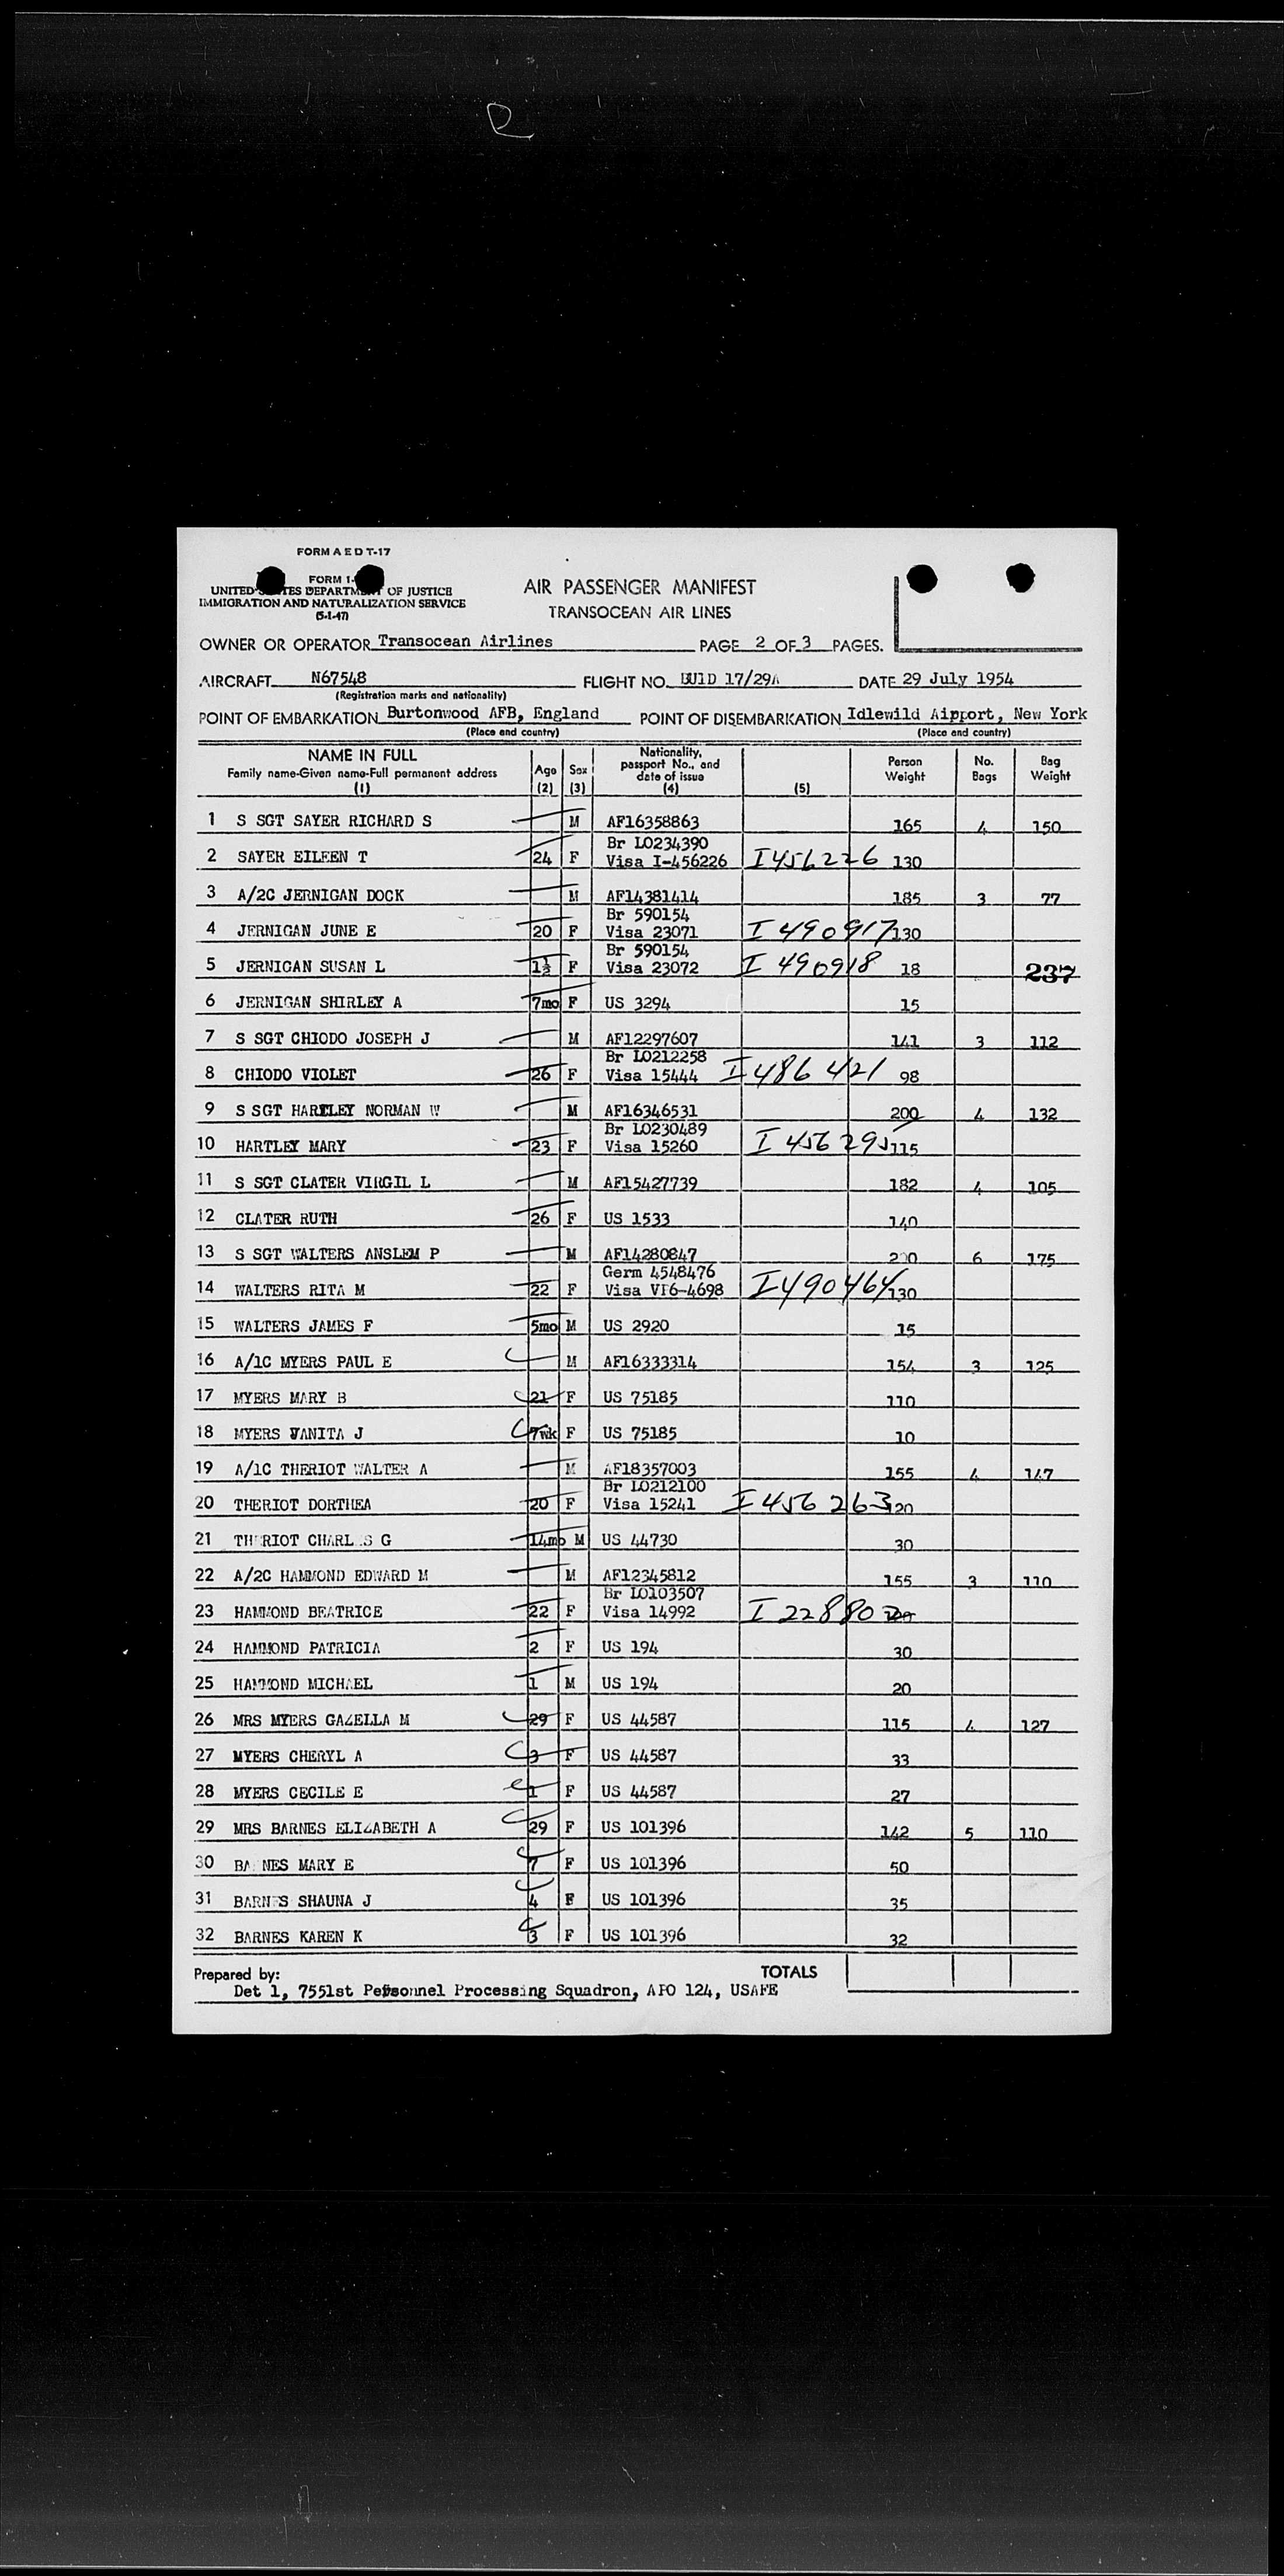 FORM A E D T-17
FORM 1-
UNITED STATES DEPARTMENT OF JUSTICE
IMMIGRATION AND NATURALIZATION SERVICE
(5-1-47)
AIR PASSENGER MANIFEST
TRANSOCEAN AIR LINES
OWNER OR OPERATOR Transocean Airlines PAGE 2 OF 3 PAGES.
AIRCRAFT N67548 FLIGHT NO. BU1D 17/29A DATE 29 July 1954
(Registration marks and nationality)
POINT OF EMBARKATION Burtonwood AFB, England POINT OF DISEMBARKATION Idlewild Aipport, New York
(Place and country) (Place and country)
NAME IN FULL
Family name-Given name-Full permanent address
(1)
Age
(2)
Sex
(3)
Nationality,
passport No., and
date of issue
(4)
(5)
Person
Weight
No.
Bags
Bag
Weight
1 S SGT SAYER RICHARD S M AF16358863 165 4 150
Br LO234390
2 SAYER EILEEN T 24 F Visa I-456226 I456226 130
3 A/2C JERNIGAN DOCK M AF14381414 185 3 77
Br 590154
4 JERNIGAN JUNE E 20 F Visa 23071 I 490917 130
Br 590154
5 JERNIGAN SUSAN L 1½ F Visa 23072 I 490918 18 237
6 JERNIGAN SHIRLEY A 7mo F US 3294 15
7 S SGT CHIODO JOSEPH J M AF12297607 141 3 112
Br LO212258
8 CHIODO VIOLET 26 F Visa 15444 I 486421 98
9 S SGT HARTLEY NORMAN W M AF16346531 200 4 132
Br LO230489
10 HARTLEY MARY 23 F Visa 15260 I 456295 115
11 S SGT CLATER VIRGIL L M AF15427739 182 4 105
12 CLATER RUTH 26 F US 1533 140
13 S SGT WALTERS ANSLEM P M AF14280847 200 6 175
Germ 4548476
14 WALTERS RITA M 22 F Visa VI6-4698 I490464 130
15 WALTERS JAMES F 5mo M US 2920 15
16 A/1C MYERS PAUL E M AF16333314 154 3 125
17 MYERS MARY B 21 F US 75185 110
18 MYERS JANITA J 7wk F US 75185 10
19 A/1C THERIOT WALTER A M AF18357003 155 4 147
Br LO212100
20 THERIOT DORTHEA 20 F Visa 15241 I 456263 120
21 THERIOT CHARLES G 14mo M US 44730 30
22 A/2C HAMMOND EDWARD M M AF12345812 155 3 110
Br LO103507
23 HAMMOND BEATRICE 22 F Visa 14992 I 228802
24 HAMMOND PATRICIA 2 F US 194 30
25 HAMMOND MICHAEL 1 M US 194 20
26 MRS MYERS GAZELLA M 29 F US 44587 115 4 127
27 MYERS CHERYL A 3 F US 44587 33
28 MYERS CECILE E 1 F US 44587 27
29 MRS BARNES ELIZABETH A 29 F US 101396 142 5 110
30 BARNES MARY E 7 F US 101396 50
31 BARNES SHAUNA J 4 F US 101396 35
32 BARNES KAREN K 3 F US 101396 32
Prepared by: TOTALS
Det 1, 7551st Personnel Processing Squadron, APO 124, USAFE